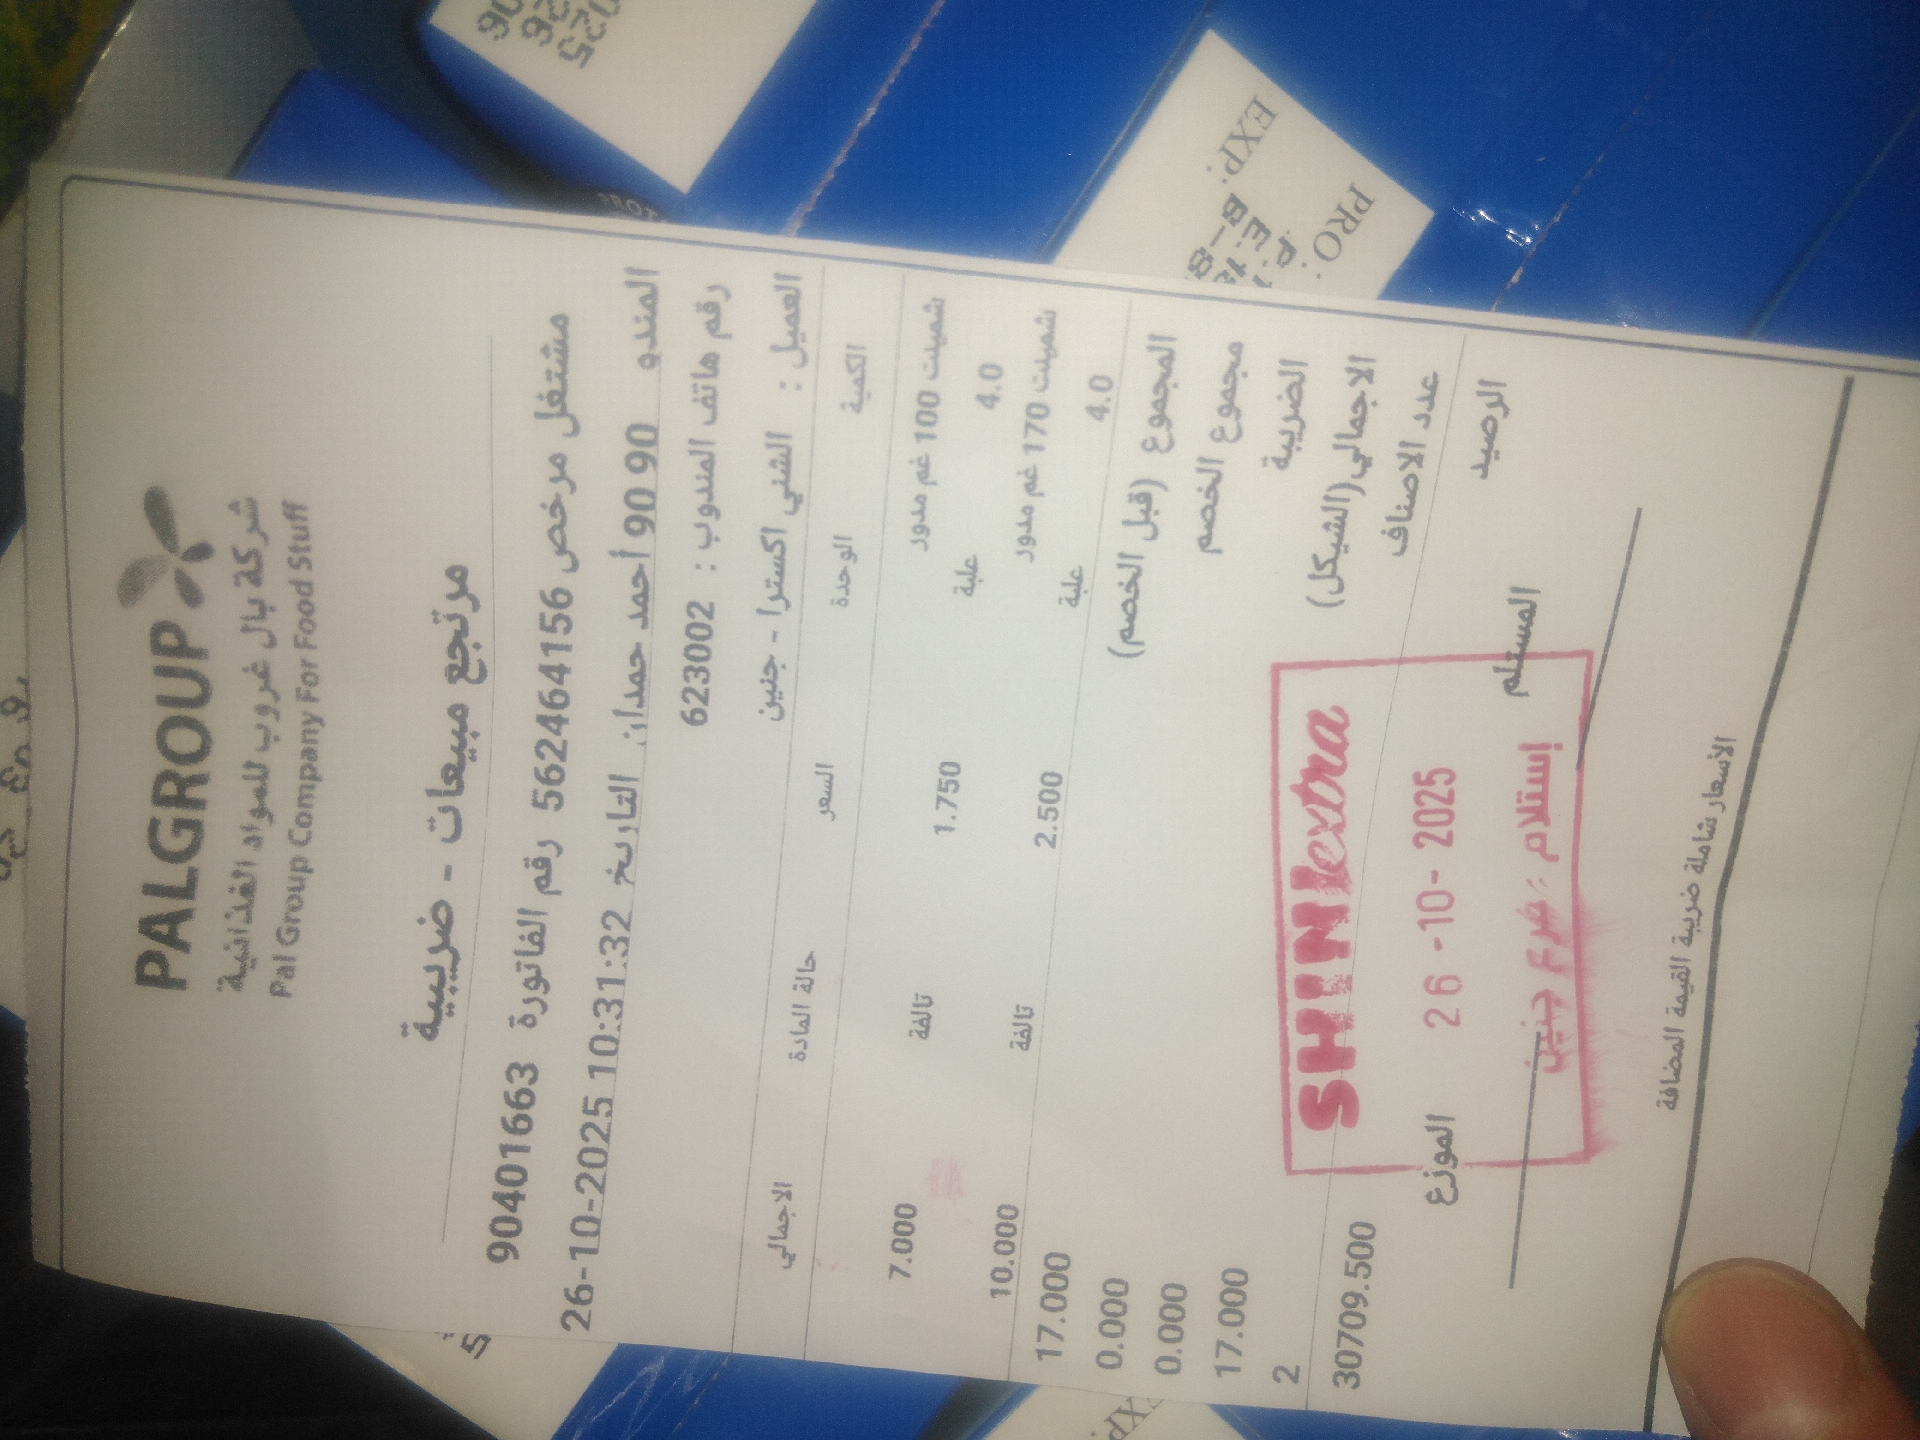 PALGROUP
شركة بال غروب للمواد الغذائية
Pal Group Company For Food Stuff
مرتجع مبيعات - ضريبية
مشتغل مرخص 562464156 رقم الفاتورة 90401663
المندو 90 90 أحمد حمدان التاريخ 26-10-2025 10:31:32
رقم هاتف المندوب : 623002
العميل : الشني اكسترا - جنين
الكمية الوحدة السعر حالة المادة الاجمالي
شميلت 100 غم مدور
4.0 علبة 1.750 تالفة 7.000
شميلت 170 غم مدور
4.0 علبة 2.500 تالفة 10.000
المجموع (قبل الخصم) 17.000
مجموع الخصم 0.000
الضريبة 0.000
الاجمالي(الشيكل) 17.000
عدد الاصناف 2
الرصيد 30709.500
المستلم الموزع
SHINI extra
26-10-2025
إستلام : فرع جنين
الأسعار شاملة ضريبة القيمة المضافة
PRO:
EXP: